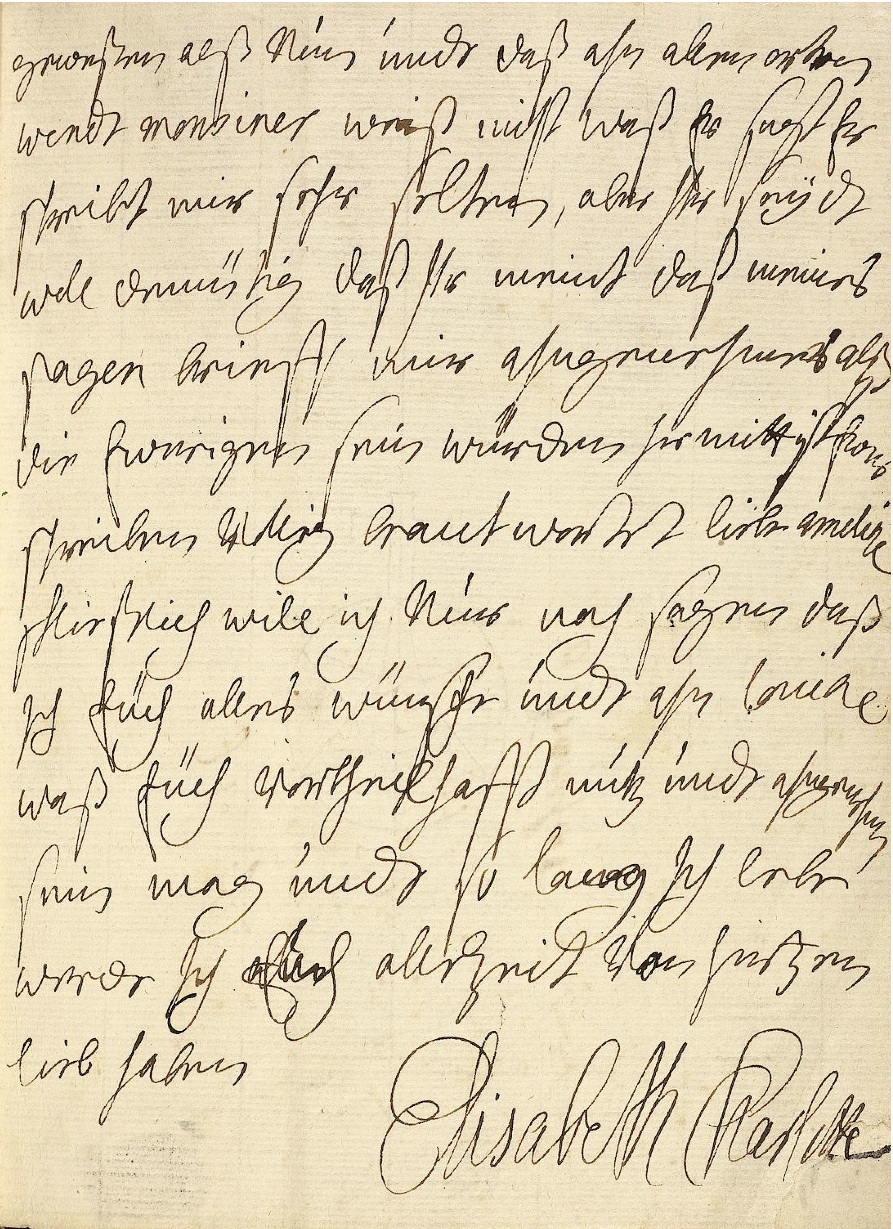 geweßen alß Nun undt daß ahn allen orten
wendt monsieur weiß nicht waß Er sagt Er
schreibt mir sehr selten, aber Ihr seydt
woll demütig daß Ihr meint daß
sagen brieff mir ahngenehmer alß
die Ewerigen sein würden hirmitt ist Ewer
schreiben Vollig beantwortet liebe amelise
schließlich will ich Nur noch sagen daß
Ich Eüch alles wünsche undt ahn louise
waß Eüch vortheilhafft nütz undt ahngenehm
sein mag undt so lang Ich lebe
werde Ich Eüch allezeit Von hertzen
lieb haben
Elisabeth Charlotte